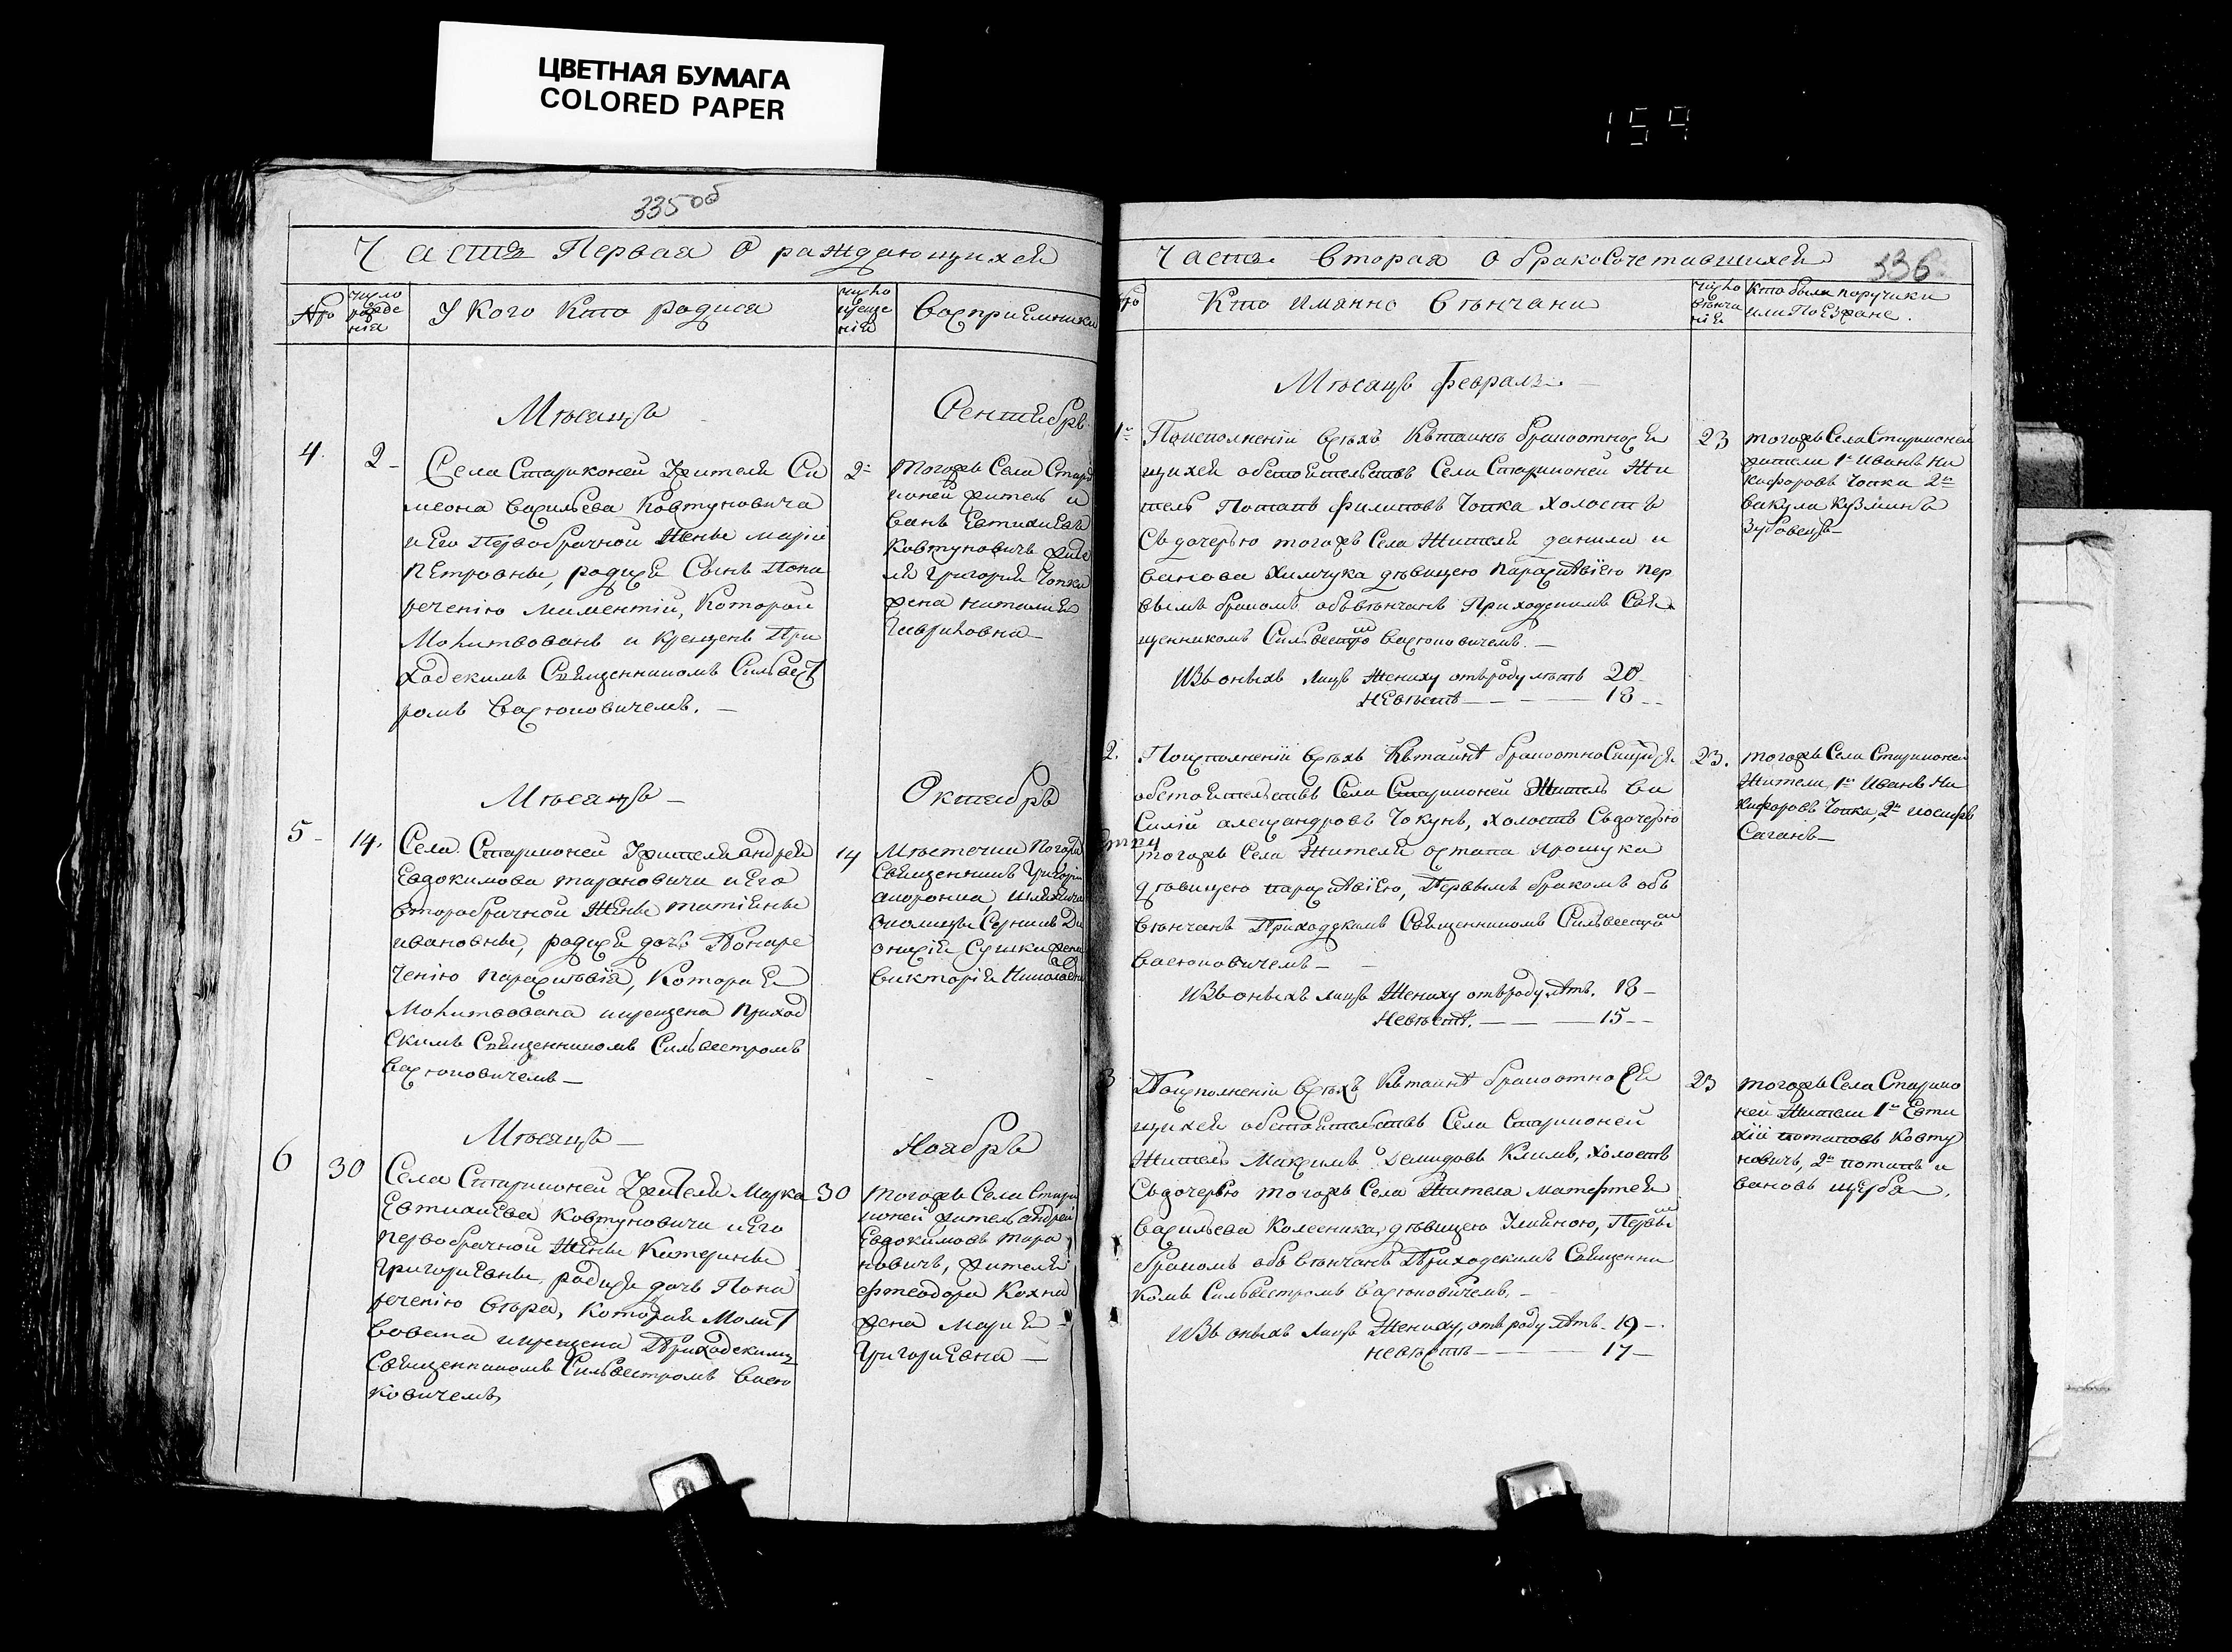 ЦВЕТНАЯ БУМАГА
COLORED PAPER
159
335 об
Часть Первая О раждающихся
Нро
число рожде нія
У Кого Кто родися
число креще нія
Восприемники
Мѣсяцъ Сентябрь
4. 2
Села Старыконей Жителя Си
меона Васильева Ковтуновича
и Его Первобрачной Жены Маріи
Петровны, родися Сынъ Пона
реченію Климентій, Которой
Молитвованъ и Крещенъ При
ходскимъ Священникомъ Сильвест
ромъ Васюковичемъ. —
2
Тогожъ Села Стары
коней житель И
ванъ Евтихиевъ
Ковтуновичъ жите
ля Григорія Чопка
жена Наталия
Гавриловна —
Мѣсяцъ — Октябрь
5 - 14.
Села Старыконей Жителя Андрея
Евдокимова Тарановича и Его
второбрачной Жены Татіяны
Ивановны, родися дочь Понаре
ченію Параскевія, Которая
Молитвована икрещена Приход
скимъ Священникомъ Сильвестромъ
Васюковичемъ —
14
Мѣстечка Погоре
Священникъ Григорій
жена
Викторія Николаевна
Мѣсяцъ — Ноябрь
6 30
Села Старыконей Жителя Марка
Евтихиева Ковтуновича и Его
первобрачной Жены Катерины
Григориевны, родися дочь Пона
реченію Вѣра, Которая Молит
вована икрещена Приходскимъ
Священникомъ Сильвестромъ Васю
ковичемъ
30
Тогожъ Села Стары
коней житель Андрей
Евдокимовъ Тара
новичъ, жителя
Фтеодора Кохна
жена Мария
Григориевна —
Часть Вторая О бракосочетавшихся
336
Нро
Кто имянно Вѣнчани
число вѣнча ния
Кто были поручики
или Поезжане.
Мѣсяцъ Февраль
1
Поисполненіи всѣхъ Кътаинѣ бракоотнося
щихся обстоятельствъ Села Старыконей Жи
тель Потапъ Филиповъ Чопка холостъ
Съ дочерью тогожъ Села Жителя Данила И
ванова Химчука дѣвицею Параскевіею пер
вымъ бракомъ обвѣнчанъ Приходскимъ Свя
щенникомъ Сильвестромъ Васюковичемъ. —
Изъ оныхъ Лицъ Жениху отъроду лѣтъ 20
Невѣстѣ — 18
23
тогожъ Села Старыконей
жители 1й Иванъ Ни
кифоровъ Чопка 2й
Вакула Кузминъ
Зубовецъ —
2.
Поисполненіи всѣхъ Кътаинѣ бракоотносящихся
обстоятельствъ Села Старыконей Житель Ва
силій Александровъ Чокунъ, холостъ Съдочерью
тогожъ Села Жителя Остапа Ярощука
дѣвицею Параскевіею, Первымъ бракомъ объ
вѣнчанъ Приходскимъ Священникомъ Сильвестромъ
Васюковичемъ —
Изъ оныхъ лицъ Жениху отъроду лѣтъ. 18 —
Невѣстѣ. — 15 —
23.
тогожъ Села Старыконей
Жители 1й Иванъ Ни
кифоровъ Чопка, 2й Иосифъ
Саганъ —
3
Поисполненіи всѣхъ Кътаинѣ бракоотнося
щихся обстоятельствъ Села Старыконей
Житель Максимъ Демидовъ Климъ, холостъ
Съдочерью тогожъ Села Жителя Матфтея
Васильева Колесника, дѣвицею Улияною, Первымъ
бракомъ объвѣнчанъ Приходскимъ Священни
комъ Сильвестромъ Васюковичемъ, —
Изъ оныхъ Лицъ Жениху, отъроду лѣтъ 19 —
невѣстѣ — 17 —
23
тогожъ Села Старыко
ней Жители 1й Евти
хій Потаповъ Ковту
новичъ, 2й Потапъ И
вановъ Щерба.